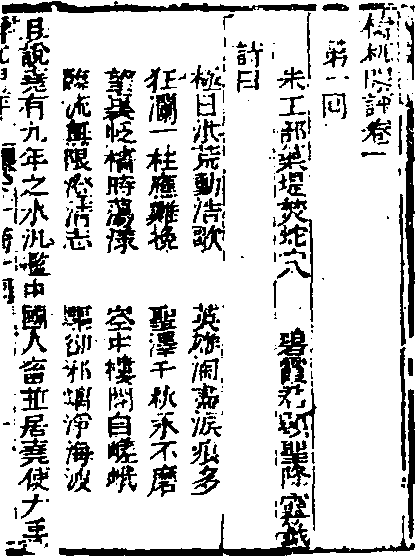 梼杌閑評卷一
第一回
朱工部築堤焚蛇穴　碧霞君顯聖降靈籤
詩曰
極目洪荒動浩歌　英雄淘盡淚痕多
狂瀾一柱應難挽　聖澤千秋永不磨
望裏帆檣時蕩漾　空中樓閣自嵯峨
臨流無限澄清志　驅卻邪螭淨海波
且說堯有九年之水泛濫中國人畜並居堯使大禹